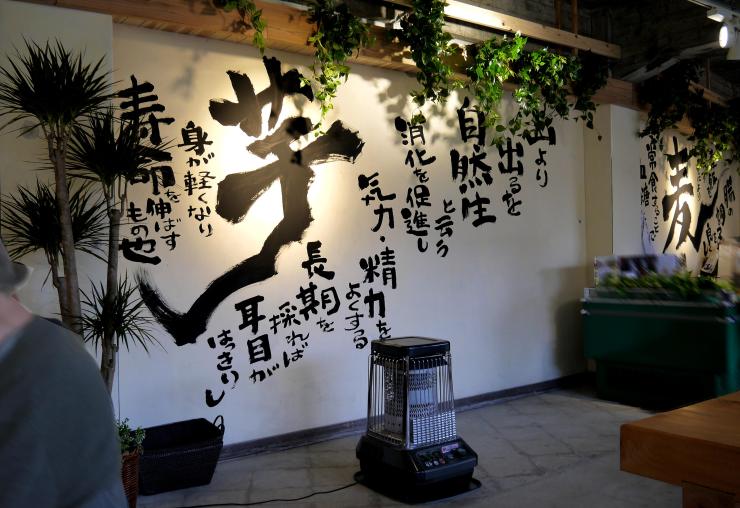 山より
出ると
自然生
と云う
消化を促進し
気力・精力を
よくする
長期を
採れば
耳目が
はっきりし
芋
身が軽くなり
寿命を伸ばす
もの也
麦